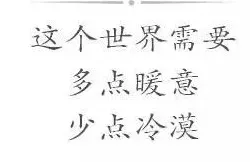 这个世界需要
多点暖意
少点冷漠